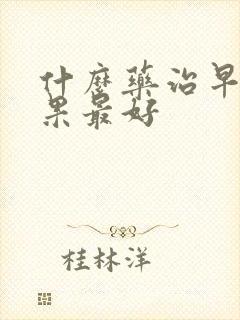 什麼藥治早
果最好
桂林洋